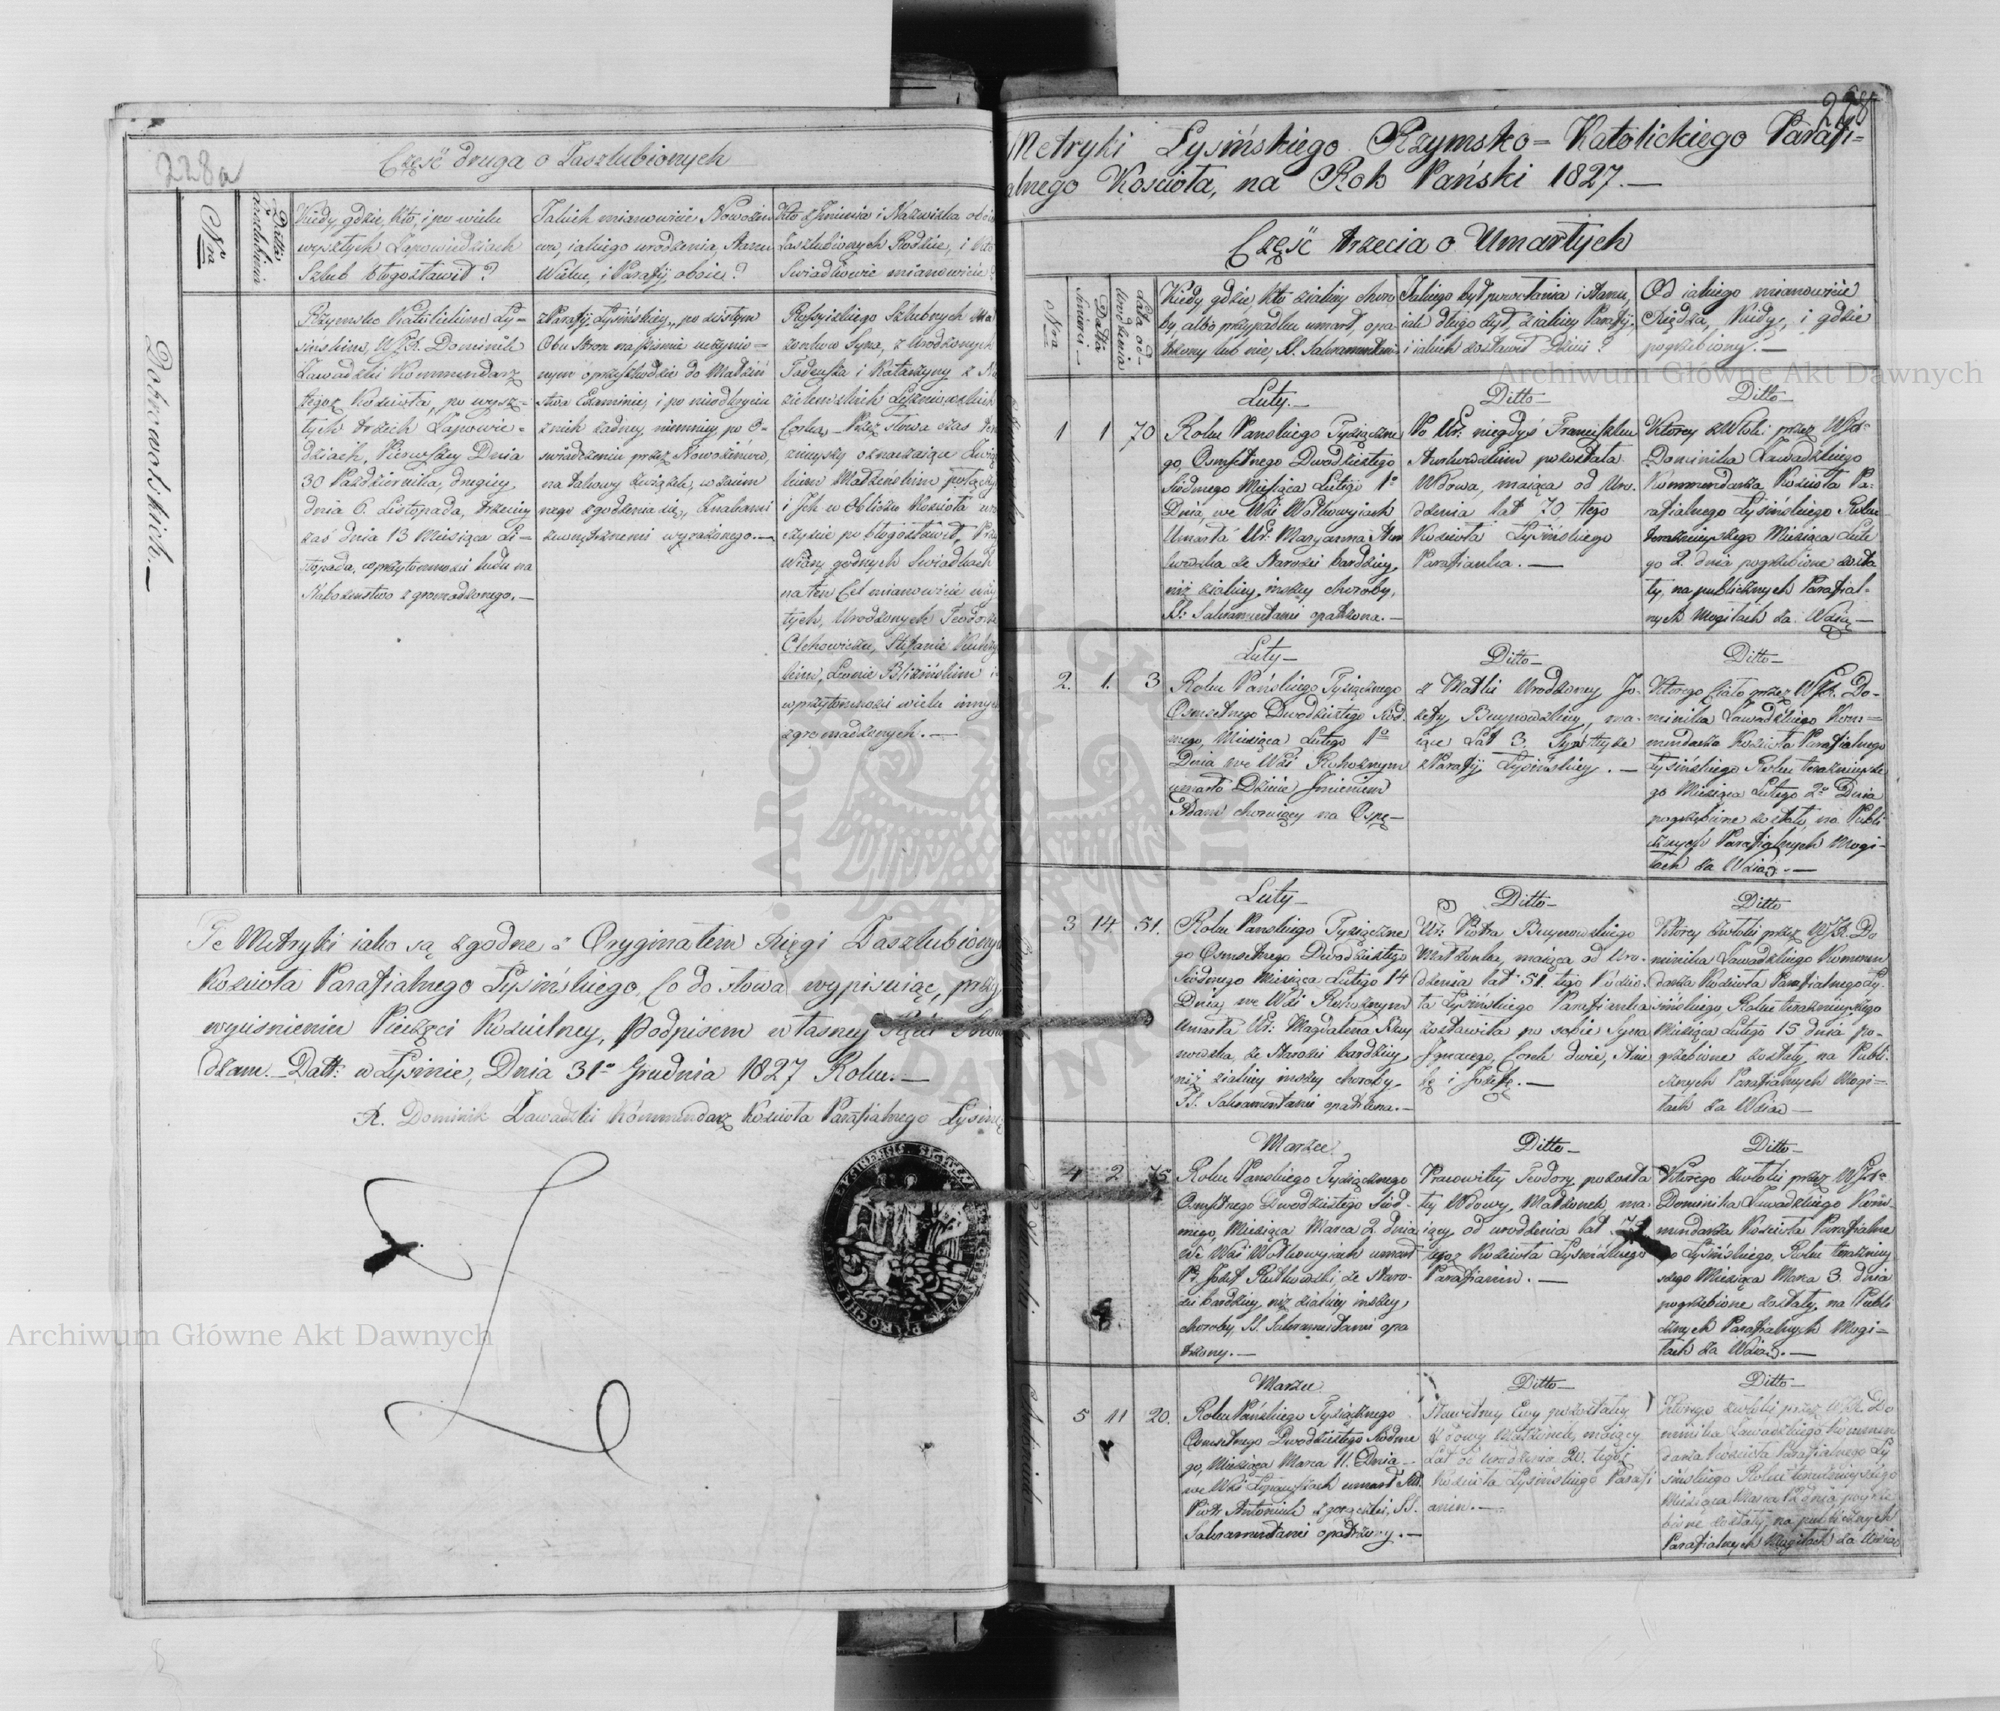 228a
Część druga o Zaszlubionych
Nra
Datta
Kiedy, gdzie, kto, i po wielu
wyszłych Zapowiedziach
Szlub błogosławił?
Jakich mianowicie Nowożeń
ców, iakiego urodzenia, Stanu
Wieku, i Parafij oboie?
Kto z Imienia i Nazwiska
Zaszlubionych Rodzice, i kto
Swiadkowie mianowicie
Dobrowolskich.—
Rzymsko Katolickim Ły-
sińskim, WJX. Dominik
Zawadzki Kommendarz
tegoż Kościoła, po wysz-
łych trzech Zapowie-
dziach, Pierwszey Dnia
30 Października, drugiey
dnia 6. Listopada, trzeciey
zaś dnia 13 Miesiąca Li-
stopada, w przytomności ludu na
Nabożeństwo zgromadzonego.—
z Parafij Łysińskiey, po
Obu Stron na piśmie uczynio-
nym o przeszkodzie do Małżeń
stwa Examinie, i po nieodkryciu
znich żadney, niemniey po O-
świadczeniu przez Nowożeńców,
na takowy związek, wzaiem
nego zgodzenia się, Znakami
zewnętrznemi wyrażonego.—
Szlubnych Ma
żonków Syna, z Urodzonych
Tadeusza i Katarzyny z
Corkę. Przez słowa czas
oznaczaiące
Małżeńskim połączył
i Ich w Obliczu Kościoła
pobłogosławił, Przy
Wiary godnych Swiadkach
na ten Cel mianowicie
tych, Urodzonych Teodorze
Olchowiczu, Stefanie
Leonie Blizińskim i
w przytomności wielu innych
zgromadzonych.—
Te Metryki iako są zgodne z Oryginałem Xięgi Zaszlubionych
Kościoła Parafialnego Łysińskiego, Co do słowa wypisuiąc, przy
wyciśnieniu Pieczęci Kościelney, Podpisem własney Ręki
dzam.—Datt: w Łysinie, Dnia 31o Grudnia 1827 Roku.—
X. Dominik Zawadzki Kommendarz Kościoła Parafialnego
228
Metryki Łysińskiego Rzymsko=Katolickiego Parafi-
alnego Kościoła, na Rok Pański 1827.—
Część trzecia o Umarłych
Nra
Datta
Śmierci
Lata od-
Urodzenia
Kiedy, gdzie, kto z iakiey choro
by, albo przypadku umarł, opa-
trzony lub nie, SS. Sakramentami
Jakiego był powołania i Stanu,
iak długo żył, z iakiey Parafij,
i iakich zostawił Dzieci?
Od iakiego mianowicie
Xiędza, Kiedy, i gdzie
pogrzebiony?—
Luty.—
Ditto—
Ditto—
1
1
70
Roku Panskiego Tysiączne
go, Osmsetnego Dwudziestego
Siodmego Miesiąca Lutego 1o
Dnia, we Wsi Wołkowyiach
Umarła Ur: Maryanna
ze Starości bardziey,
niż z iakiey inszey choroby,
SS: Sakramentami opatrzona.—
Po Ur: niegdyś Franciszku
pozostała
Wdowa, maiąca od Uro-
dzenia lat 70 tego
Kościoła Łysińskiego
Parafianka.—
Ktorey zwłoki przez WJX.
Dominika Zawadzkiego
Kommendarza Kościoła Pa-
rafialnego Łysińskiego Roku
teraznieyszego Miesiąca Lute
go 2. dnia pogrzebione zosta
ły, na publicznych Parafial-
nych Mogiłach za Wsią—
Luty—
Ditto—
Ditto—
2.
1.
3
Roku Pańskiego Tysiącznego
Osmsetnego Dwudziestego Siod-
mego, Miesiąca Lutego 1o
Dnia we Wsi
umarło Dziecie Imieniem
Adam choruiący na Ospę—
z Matki Urodzoney Jo-
zefy Buynowskiey, ma-
iące Lat 3.
z Parafij Łysińskiey.—
Ktorego Ciało przez WJX. Do-
minika Zawadzkiego Kom-
mendarza Kościoła Parafialnego
Łysińskiego Roku teraznieysze
go Miesiąca Lutego 2o Dnia
pogrzebione zostało, na Publi
cznych Parafialnych Mogi-
łach za Wsią.—
Luty—
Ditto—
Ditto
3
14
51.
Roku Panskiego Tysiączne
go Osmsetnego Dwudziestego
Siodmego Miesiąca Lutego 14
Dnia, we Wsi
Umarła Ur: Magdalena Buy
nowska, ze Starości bardziey,
niż z iakiey inszey choroby.
SS. Sakramentami opatrzona.—
Ur: Piotra Buynowskiego
Małżonka, maiąca od Uro-
dzenia lat 51. tego Kościo-
ła Łysińskiego Parafianka
zostawiła po sobie Syna
Ignacego, Corek dwie,
i Jozefę.—
Ktorey zwłoki przez WJX. Do
minika Zawadzkiego Kommen
darza Kościoła Parafialnego Ły-
sińskiego Roku teraznieyszego
Miesiąca Lutego 15 dnia po-
grzebione zostały, na Publi-
cznych Parafialnych Mogi-
łach za Wsią—
Marzec
Ditto—
Ditto—
4
2
75
Roku Panskiego Tysiącznego
Osmsetnego Dwudziestego Siod-
mego, Miesiąca Marca 2 dnia
we Wsi Wołkowyiach umarł
P. Jozef Rutkowski, ze Staro-
ści bardziey, niż z iakiey inszey
choroby, SS. Sakramentami opa
trzony.—
Pracowitey Teodory pozosta
łey Wdowy, Małżonek, ma-
iący od urodzenia lat
tegoż Kościoła Łysińskiego
Parafianin.—
Ktorego zwłoki przez WJX.
Dominika Zawadzkiego Kom-
mendarza Kościoła Parafialne
go Łysińskiego, Roku teraźniey
szego Miesiąca Marca 3. dnia
pogrzebione zostały, na Publi
cznych Parafialnych Mogi-
łach za Wsią.—
Marzec
Ditto—
Ditto—
5
11
20.
Roku Pańskiego Tysiącznego
Osmsetnego Dwudziestego Siodme
go, Miesiąca Marca 11. Dnia
we Wsi umarł
Piotr Antoniuk z gorączki, SS.
Sakramentami opatrzony.—
Sławetney Ewy pozostałey
Wdowy Małżonek, maiący
Lat od Urodzenia 20. tegoż
Kościoła Łysińskiego Parafi
anin.—
Ktorego zwłoki przez WJX. Do
minika Zawadzkiego Kommen
darza Kościoła Parafialnego Ły
sińskiego Roku teraznieyszego
Miesiąca Marca 12 dnia pogrze
bione zostały, na publicznych
Parafialnych Mogiłach za Wsią
Archiwum Główne Akt Dawnych
Archiwum Główne Akt Dawnych